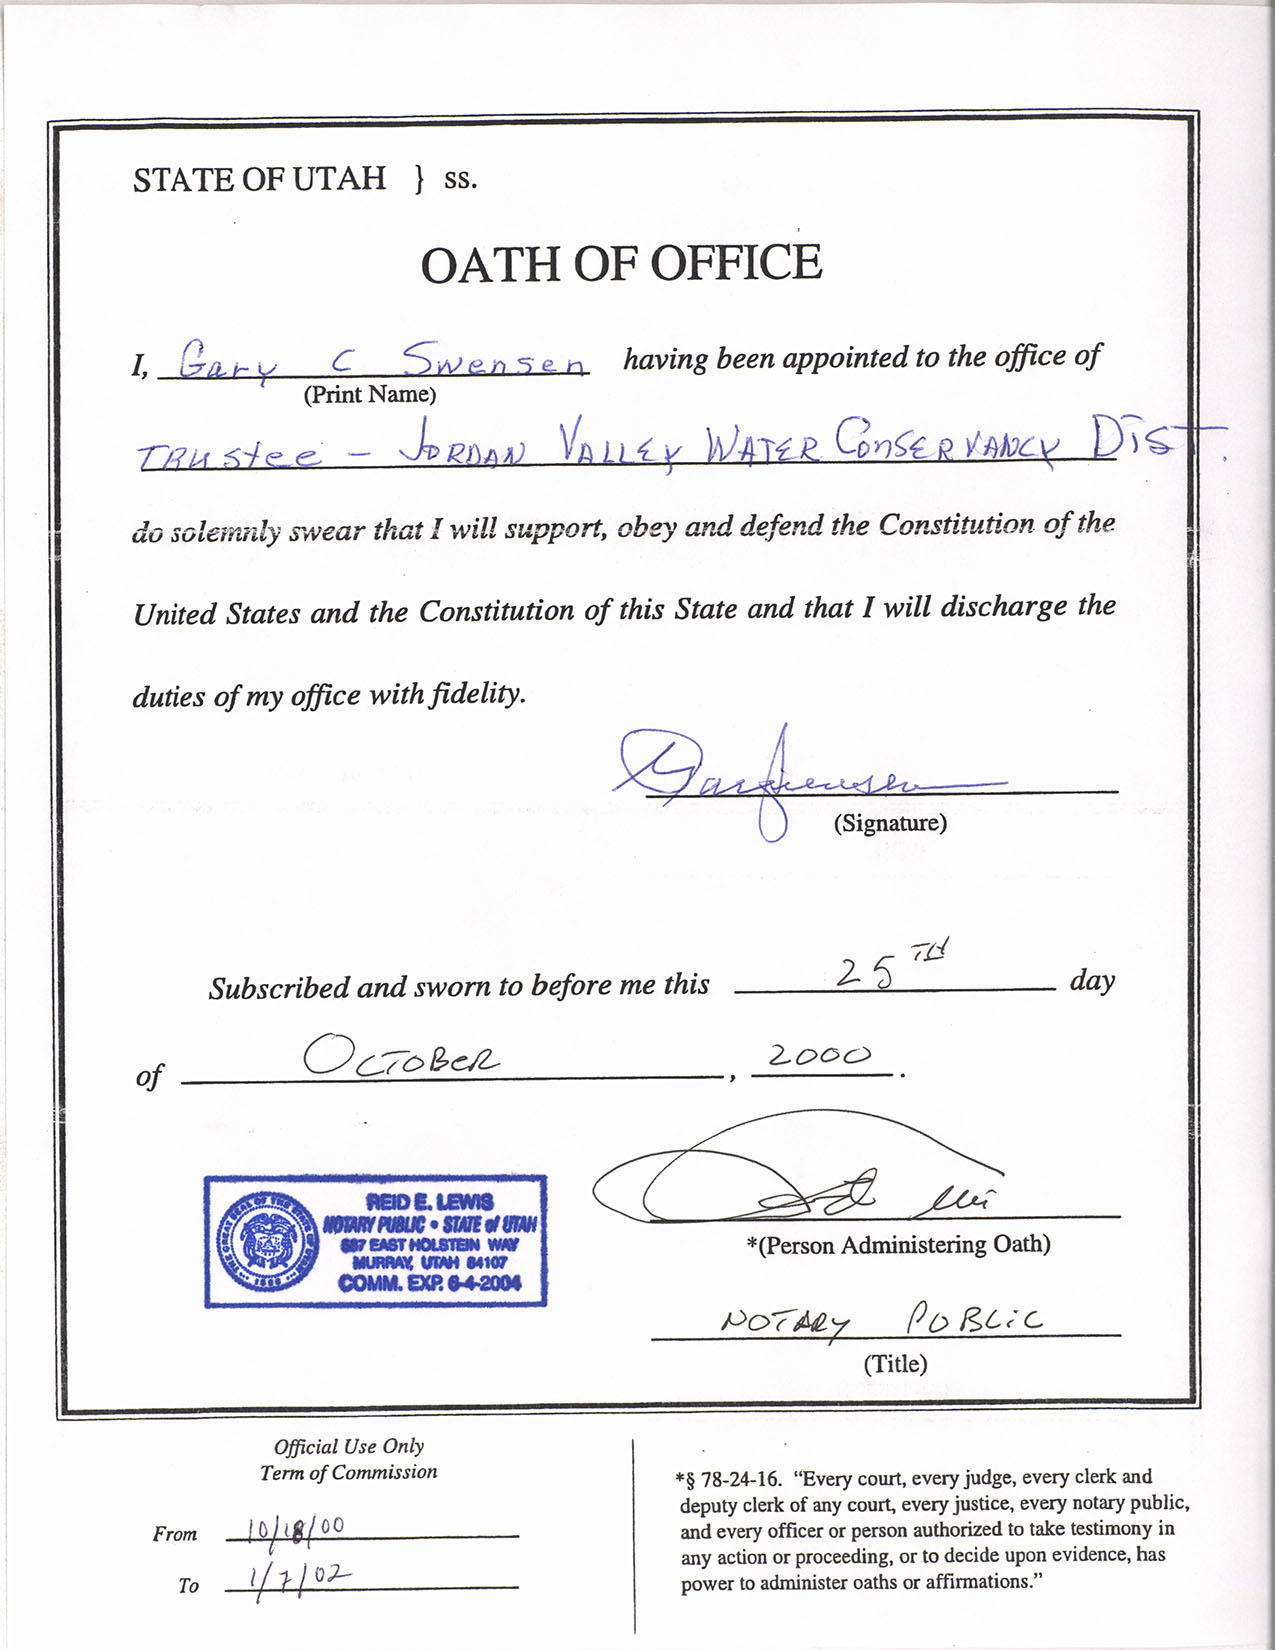 STATE OF UTAH } ss.
OATH OF OFFICE
I, Gary C Swensen having been appointed to the office of
(Print Name)
TRUstee – JORDAN VALLEY WATER CONSERVANCY DIST.
do solemnly swear that I will support, obey and defend the Constitution of the
United States and the Constitution of this State and that I will discharge the
duties of my office with fidelity.
(Signature)
Subscribed and sworn to before me this 25TH day
of OCTOBER, 2000.
REID E. LEWIS
NOTARY PUBLIC • STATE of UTAH
667 EAST HOLSTEIN WAY
MURRAY, UTAH 84107
COMM. EXP. 6-4-2004
*(Person Administering Oath)
NOTARY PUBLIC
(Title)
Official Use Only
Term of Commission
From 10/18/00
To 1/7/02
*§ 78-24-16. “Every court, every judge, every clerk and
deputy clerk of any court, every justice, every notary public,
and every officer or person authorized to take testimony in
any action or proceeding, or to decide upon evidence, has
power to administer oaths or affirmations.”